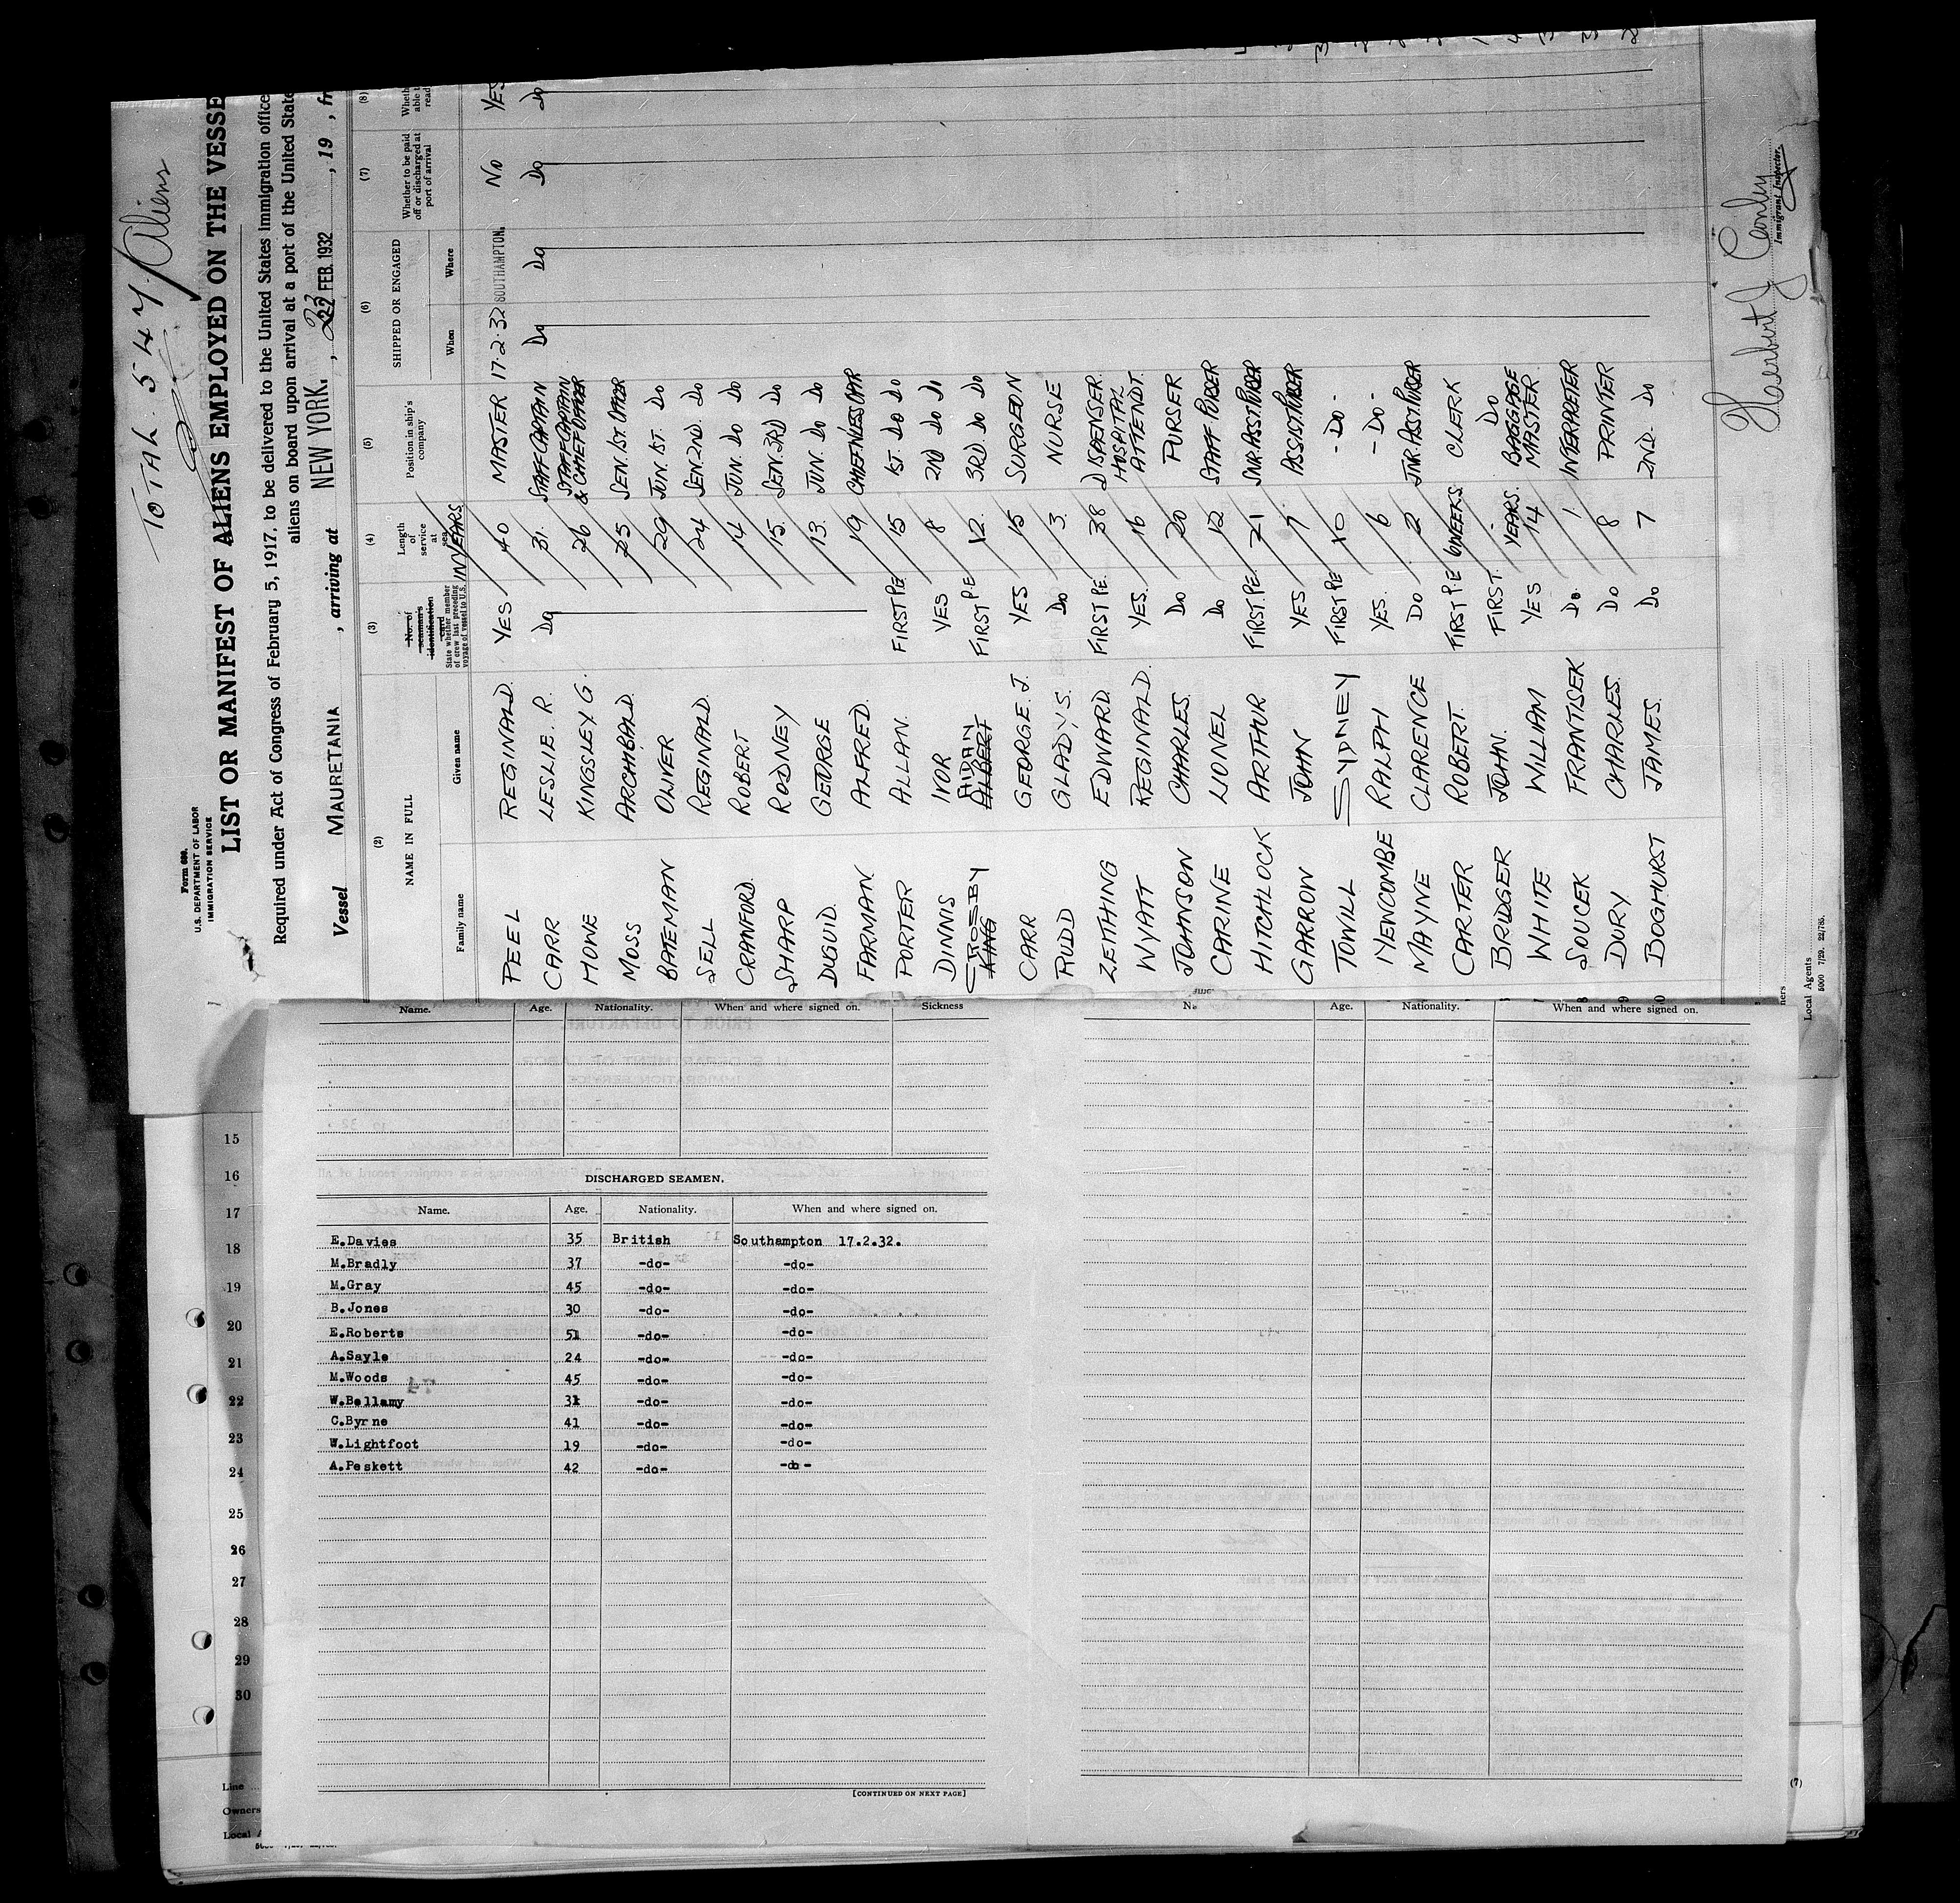 TOTAL 547 Aliens
Form 689.
U.S. DEPARTMENT OF LABOR
IMMIGRATION SERVICE
LIST OR MANIFEST OF ALIENS EMPLOYED ON THE VESSE
Required under Act of Congress of February 5, 1917, to be delivered to the United States immigration office
aliens on board upon arrival at a port of the United State
Vessel MAURETANIA , arriving at NEW YORK. , 22 FEB. 1932 , 19 , fr
(2) (3) (4) (5) (6) (7) (8)
NAME IN FULL
Family name Given name
No. of seaman's identification card
State whether member of crew last preceding voyage of vessel to U.S.
Length of service at sea IN YEARS
Position in ship's company
SHIPPED OR ENGAGED
When Where
Whether to be paid off or discharged at port of arrival
PEEL REGINALD. YES 40 MASTER 17.2.32 SOUTHAMPTON. NO YES
CARR LESLIE. R. DO 31. STAFF CAPTAIN DO DO DO DO
HOWE KINGSLEY G. 26 STAFF CAPTAIN & CHIEF OFFICER
MOSS ARCHIBALD. 25 SEN. 1ST. OFFICER
BATEMAN OLIVER 29 JUN. 1ST. DO
SELL REGINALD. 24 SEN. 2ND. DO
CRANFORD. ROBERT 14 JUN. DO DO
SHARP RODNEY 15. SEN. 3RD DO
DUGUID. GEORGE 13. JUN. DO DO
FARMAN. ALFRED. 19
PORTER ALLAN. FIRST P.E. 15 1ST. DO DO
DINNIS IVOR YES 8 2ND DO DO
CROSBY KING AIDAN ALBERT FIRST P.E. 12. 3RD. DO DO
CARR GEORGE. J. YES 15 SURGEON
RUDD GLADYS. DO 3. NURSE
ZEITHING EDWARD. FIRST P.E. 38 DISPENSER.
WYATT REGINALD. YES. 16 HOSPITAL ATTENDT.
JOHNSON CHARLES. DO 20 PURSER
CARINE LIONEL DO 12 STAFF PURSER
HITCHLOCK ARTHUR FIRST. P.E. 21 SNR. ASST. PURSER
GARRON JOHN YES 7. ASSIST. PURSER
TOWILL SYDNEY FIRST P.E 10 -DO-
YENCOMBE RALPH YES. 6 -DO-
MAYNE CLARENCE DO 2 JNR. ASST. PURSER
CARTER ROBERT. FIRST P.E 6 WEEKS. CLERK
BRIDGER JOHN. FIRST. DO
WHITE WILLIAM YES YEARS. 14 BAGGAGE MASTER.
SOUCEK FRANTISEK DO. 1 INTERPRETER
DURY. CHARLES. DO 8 PRINTER
BOGHURST JAMES. DO 7 2ND. DO
Herbert J Conley
Immigrant Inspector.
Local Agents
5000 7/29. 22/785.
Name. Age. Nationality. When and where signed on. Sickness
Age. Nationality. When and where signed on.
DISCHARGED SEAMEN.
Name. Age. Nationality. When and where signed on.
E.Davies 35 British Southampton 17.2.32.
M.Bradly 37 -do- -do-
M.Gray 45 -do- -do-
B.Jones 30 -do- -do-
E.Roberts 51 -do- -do-
A.Sayle 24 -do- -do-
M.Woods 45 -do- -do-
W.Bellamy 31 -do- -do-
C.Byrne 41 -do- -do-
W.Lightfoot 19 -do- -do-
A.Peskett 42 -do- -do-
[CONTINUED ON NEXT PAGE]
(7)
15
16
17
18
19
20
21
22
23
24
25
26
27
28
29
30
Line
Owners
Local A